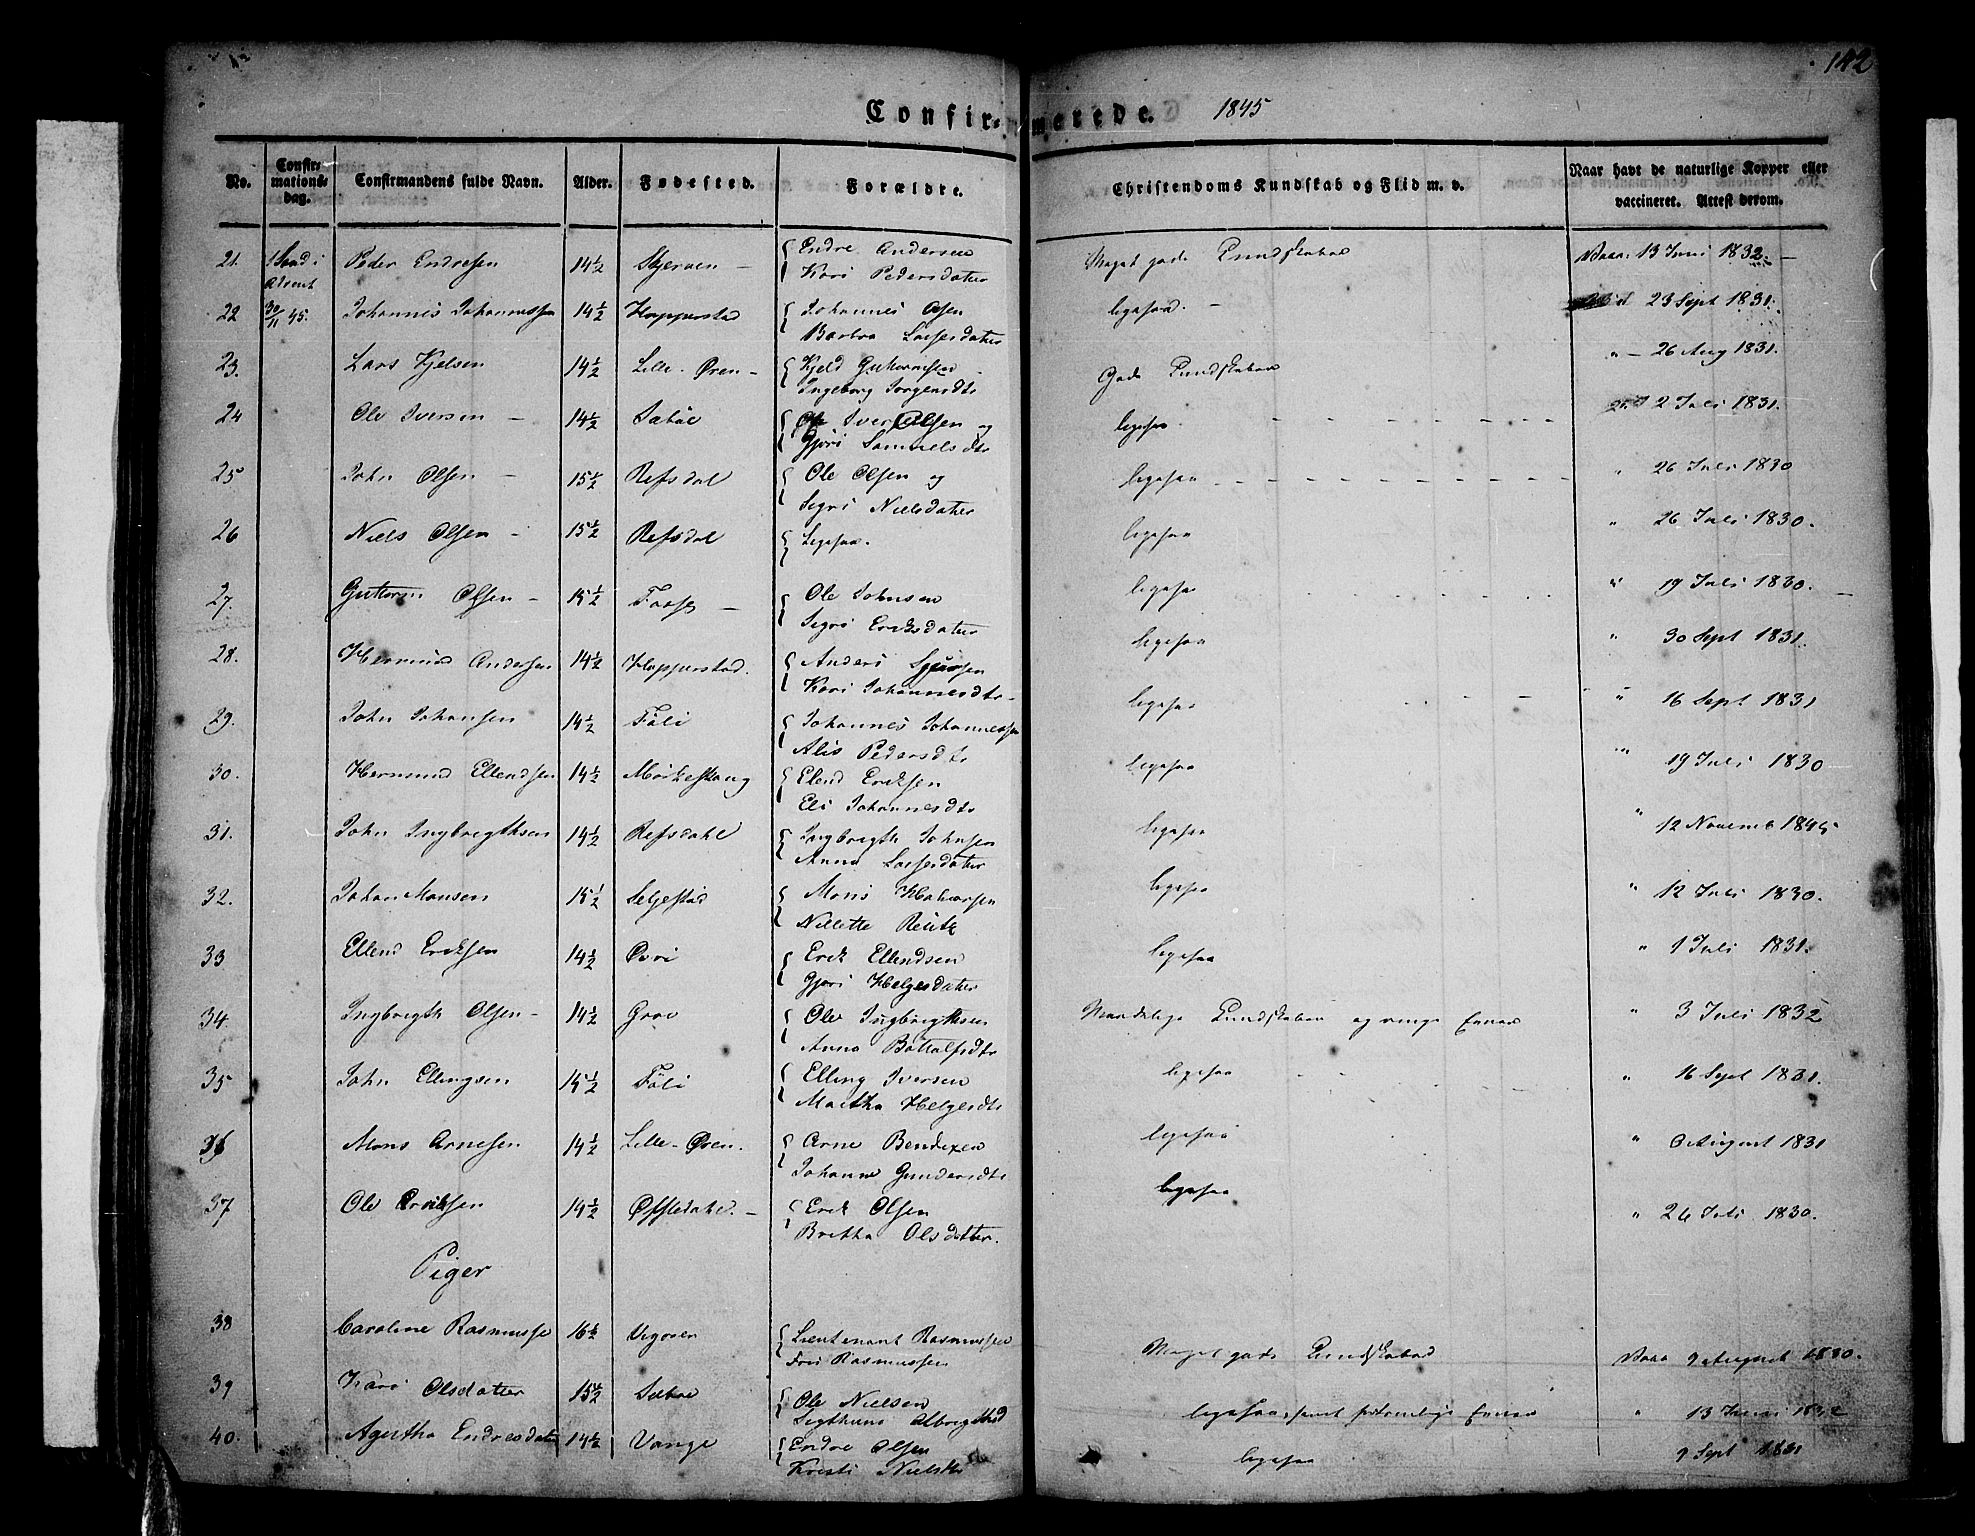 142
Confirmerede. 1845
No. Confirmationsdag. Confirmandens fulde Navn. Alder. Fødested. Forældre. Christendoms Kundskab og Flid m. v. Naar havt de naturlige Kopper eller vaccineret. Attest derom.
21. 1 Sønd i Advent Peder Endresen 14½ Skjerven - Endre Andersen Meget gode Kundskaber Vacc: 13 Juni 1832. -
Kari Pedersdatter
22 30/11 45. Johannes Johannessen 14½ Hopperstad Johannes Olsen ligesaa. - 23 Sept 1831.
Barbra Lassesdatter
23. Lars Kjelsen 14½ Lille-Øren - Kjeld Guttormsen - Gode Kundskaber " - 26 Aug 1831.
Ingeborg Jorgensdtr
24 Ole Iversen - 14½ Sæbøe Iver Olsen og ligesaa. 2 Juli 1831.
Gjøri Samuelsdtr
25 John Olsen - 15½ Refsdal Ole Olsen og ligesaa " 26 Juli 1830
Segri Nielsdatter
26 Niels Olsen - 15½ Refsdal Ligesaa. ligesaa " 26 Juli 1830.
27. Guttorm Olsen - 15½ - Ole Johnsen ligesaa " 19 Juli 1830.
Segri Eriksdatter
28. Hermund Andersen 14½ Hopperstad. Anders Sjursen ligesaa " 30 Sept 1831.
Kari Johannesdtr -
29. John Johansen 14½ Føli Johannes Johannessen ligesaa " 16 Sept 1831
Alis Pedersdtr
30. Hermund Ellendsen 14½ Mørkeskoug Elend Eriksen ligesaa " 19 Juli 1830
Eli Johannesdtr
31. John Ingbrigthsen 14½ Refsdahl Ingbrigth Johnsen ligesaa " 12 Novemb 1845
Anna Lassesdatter
32. Johan Monsen 15½ Seljestad Mons Halvorsen ligesaa " 12 Juli 1830.
Nillette Reutz
33 Ellend Eriksen 14½ Øvri Erik Ellendsen ligesaa " 1 Juli 1831.
Gjøri Helgesdatter
34. Ingbrigth Olsen - 14½ Grov Ole Ingbrigthsen Maadelige Kundskaber og ringe Evner " 3 Juli 1832
Anna Bottolfsdtr
35 John Ellingsen 15½ Føli Elling Iversen ligesaa " 16 Sept 1831.
Martha Helgesdtr
36 Mons Arnesen 14½ Lille-Øren. Arne Bendixen ligesaa " 3 August 1831
Johanne Gundersdtr
37 Ole Eriksen 14½ Øffledahl. - Erik Olsen ligesaa " 26 Juli 1830.
Britha Olsdatter.
Piger
38 Caroline Rasmusse 16½ Vigøren Lieutenant Rasmussen Meget gode Kundskaber Vacc 9 August 1830.
Fru Rasmussen
39 Kari Olsdatter 15½ Sæbøe Ole Nielsen ligesaa, samt fortrinlige Evner " 13 Juni 1832
Segthrun Olbrigthsd
40. Agertha Endresdatter 14½ Vange Endre Olsen ligesaa 9 Sept 1831
Kristi Nielsdtr